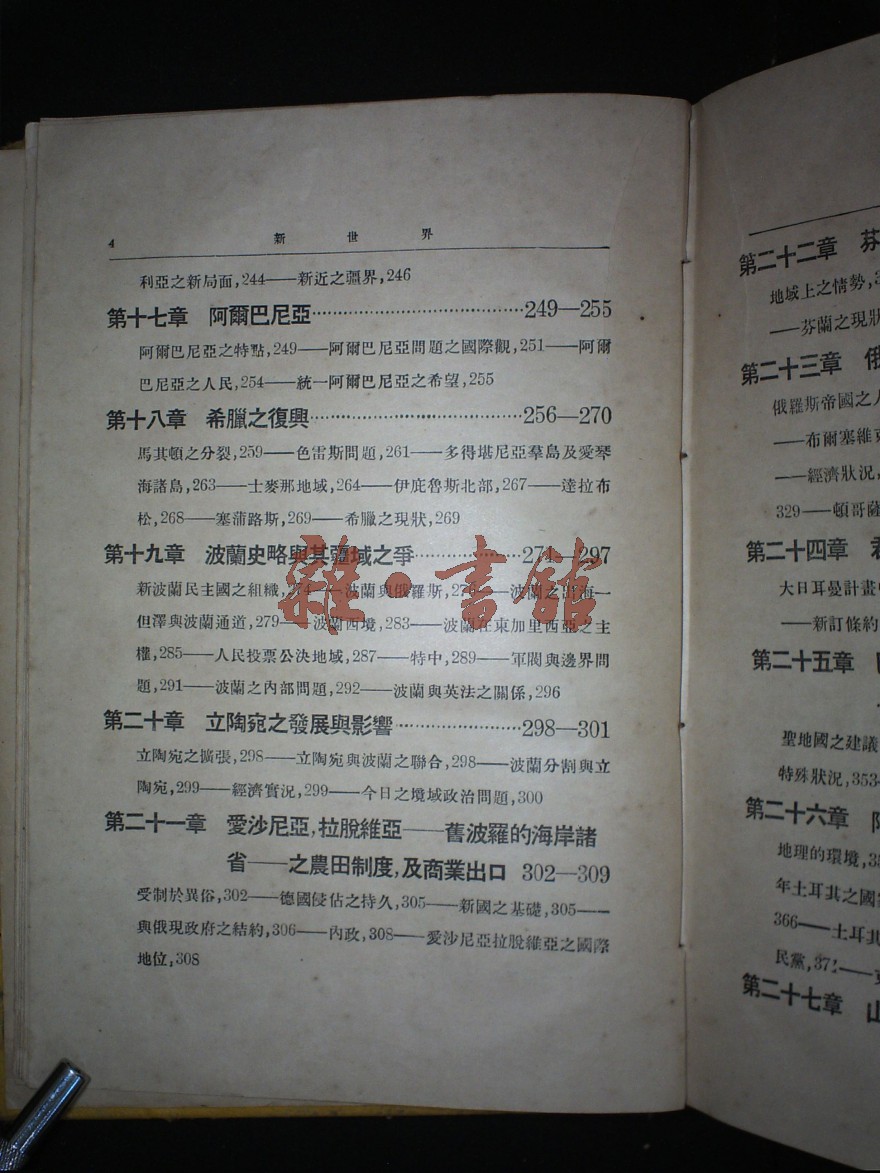 4 新世界
利亞之新局面,244——新近之疆界,246
第十七章 阿爾巴尼亞……………………………249—255
阿爾巴尼亞之特點,249——阿爾巴尼亞問題之國際觀,251——阿爾
巴尼亞之人民,254——統一阿爾巴尼亞之希望,255
第十八章 希臘之復興……………………………256—270
馬其頓之分裂,259——色雷斯問題,261——多得堪尼亞羣島及愛琴
海諸島,263——士麥那地域,264——伊庇魯斯北部,267——達拉布
松,268——塞蒲路斯,269——希臘之現狀,269
第十九章 波蘭史略與其疆域之爭……………271—297
新波蘭民主國之組織,274——波蘭與俄羅斯,276——波蘭之出海—
但澤與波蘭通道,279——波蘭西境,283——波蘭在東加里西亞之主
權,285——人民投票公決地域,287——特中,289——軍閥與邊界問
題,291——波蘭之內部問題,292——波蘭與英法之關係,296
雜·書館
第二十章 立陶宛之發展與影響………………298—301
立陶宛之擴張,298——立陶宛與波蘭之聯合,298——波蘭分割與立
陶宛,299——經濟實況,299——今日之境域政治問題,300
第二十一章 愛沙尼亞,拉脫維亞——舊波羅的海岸諸
省——之農田制度,及商業出口 302—309
受制於異俗,302——德國侵佔之持久,305——新國之基礎,305——
與俄現政府之結約,306——內政,308——愛沙尼亞拉脫維亞之國際
地位,308
第二十二章 芬
地域上之情勢,3
——芬蘭之現狀
第二十三章 俄
俄羅斯帝國之人
——布爾塞維克
——經濟狀況,
329——頓哥薩
第二十四章
大日耳曼計畫
——新訂條約
第二十五章
聖地國之建議
特殊狀況,353—
第二十六章
地理的環境,35
年土耳其之國
366——土耳其
民黨,37
第二十七章 山